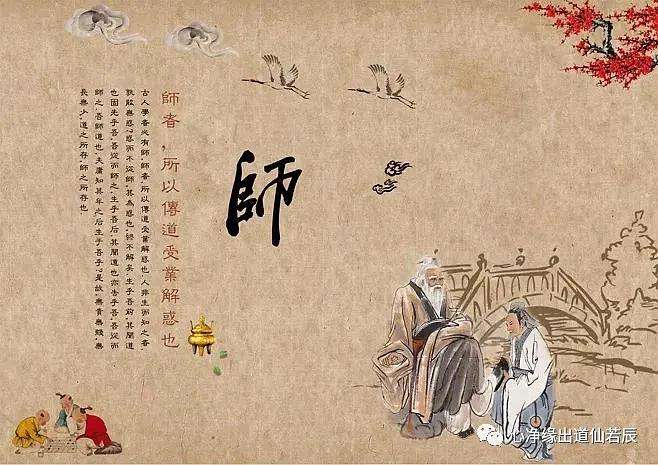 師
師者，所以傳道受業解惑也
古人學者必有師,師者,所以傳道受業解惑也.人非生而知之者
孰能無惑?惑而不從師,其為惑也,終不解矣.生乎吾前,其聞道
也固先乎吾,吾從而師之.生乎吾后,其聞道也亦先乎吾,吾從而
師之.吾師道也,夫庸知其年之后生于吾乎?是故,無貴無賤,無
長無少,道之所存,師之所存也
心净缘出道仙若辰